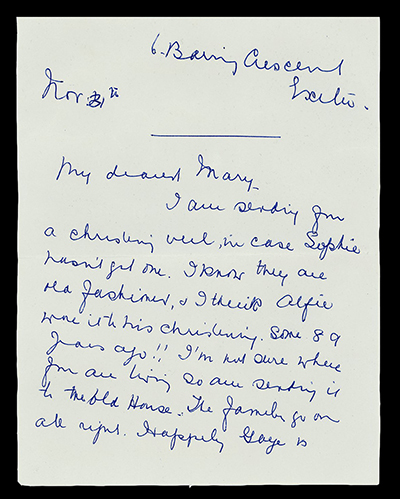 6. Baring Crescent
Exeter.
Nov. th
My dearest Mary
I am sending you
a christening veil, in case Sophie
hasn't got one. I know they are
old fashioned, & I think Alfie
wore it to his christening. Some 89
years ago!! I'm not sure where
you are living so am sending it
to the Old House. The family go on
all right. Happily Gaye is